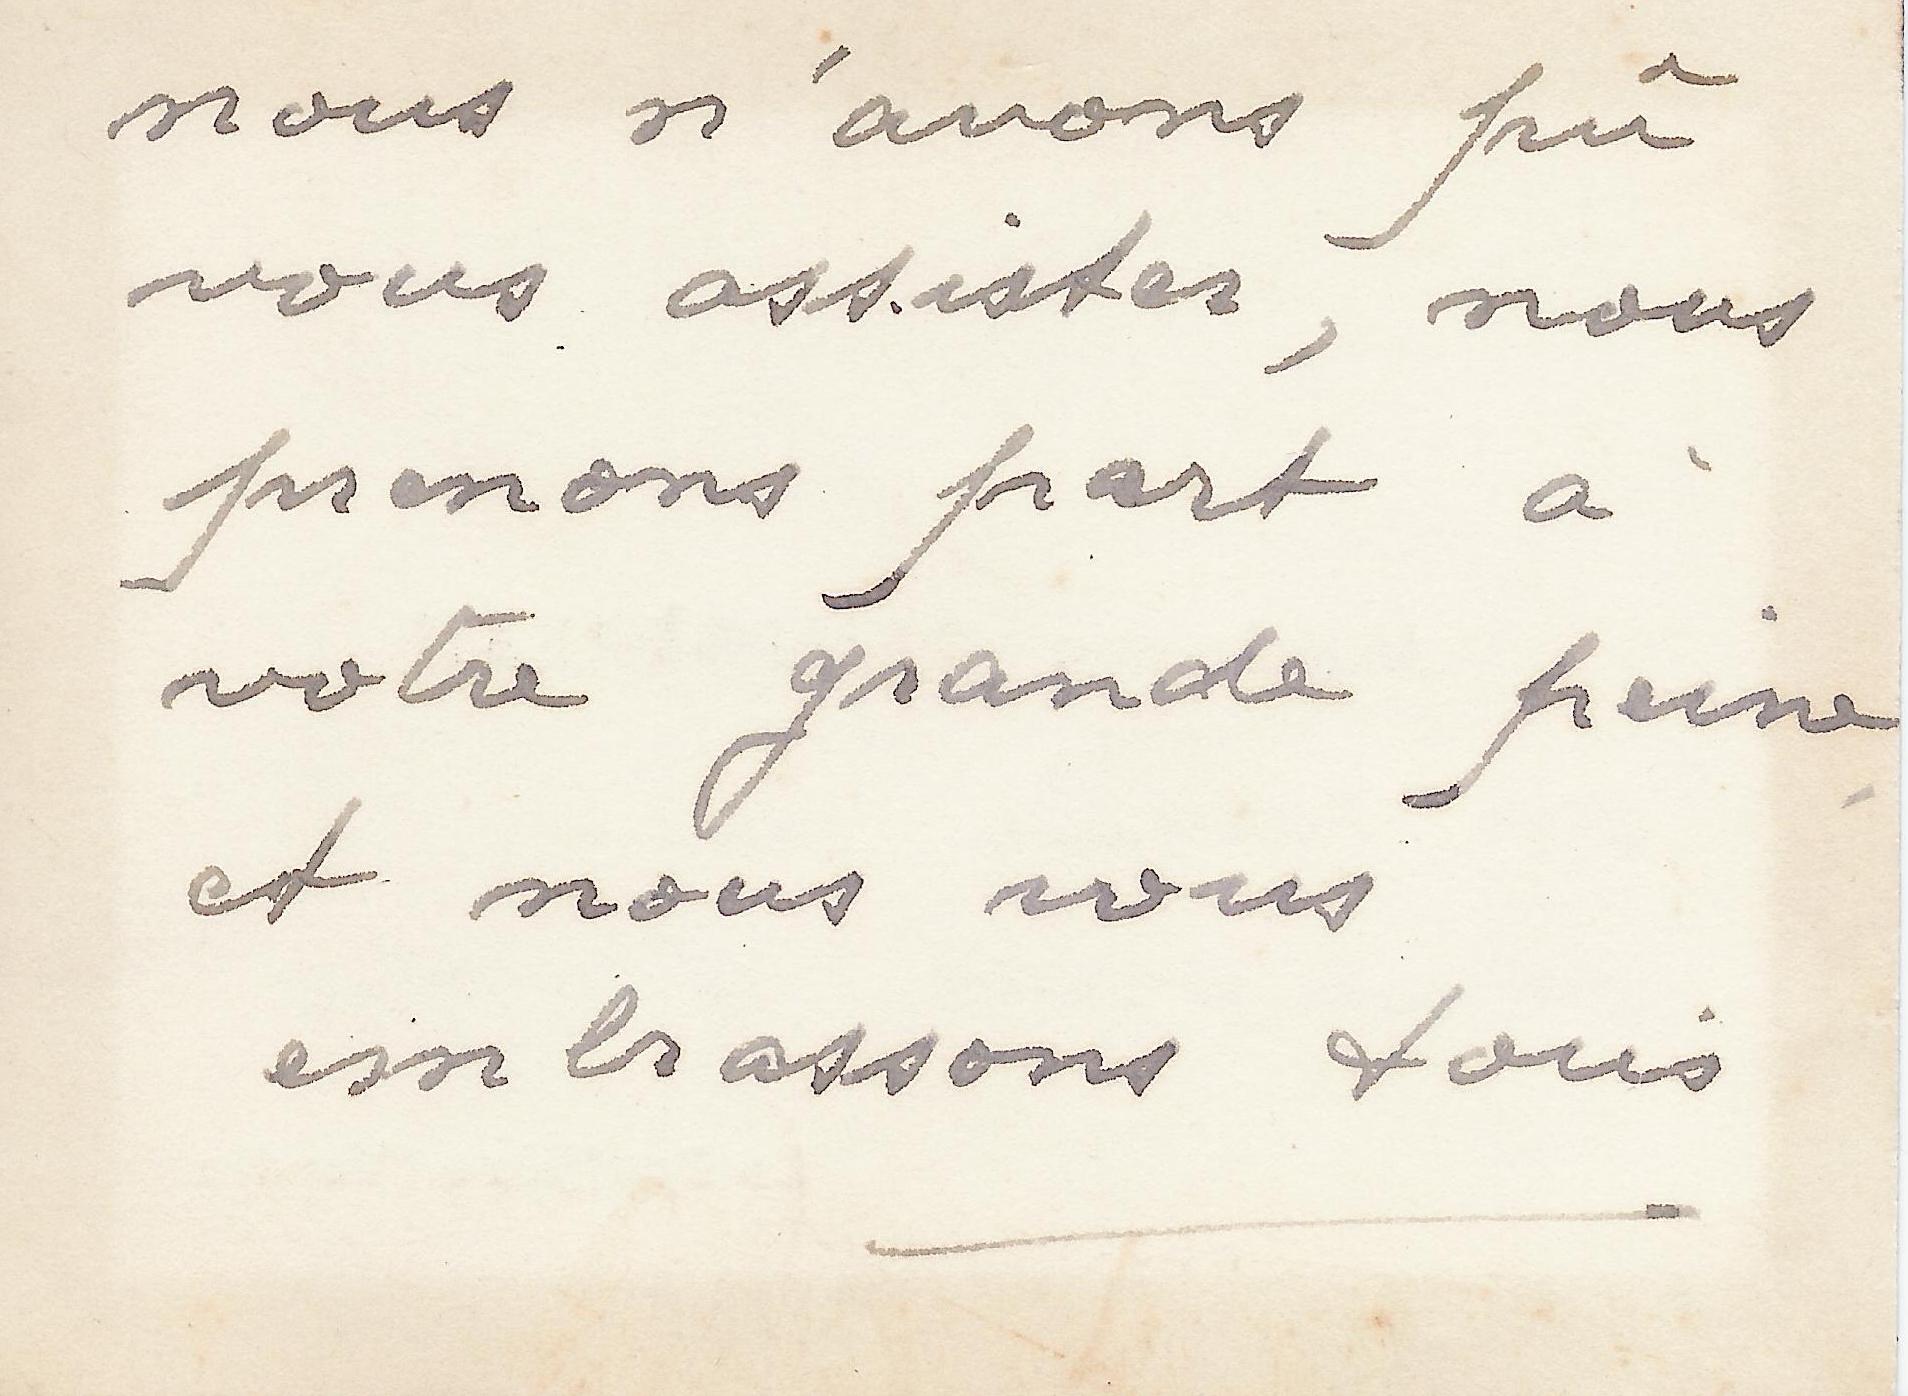 nous n'avons pû
vous assister, nous
prenons part à
votre grande peine
et nous vous
embrassons tous